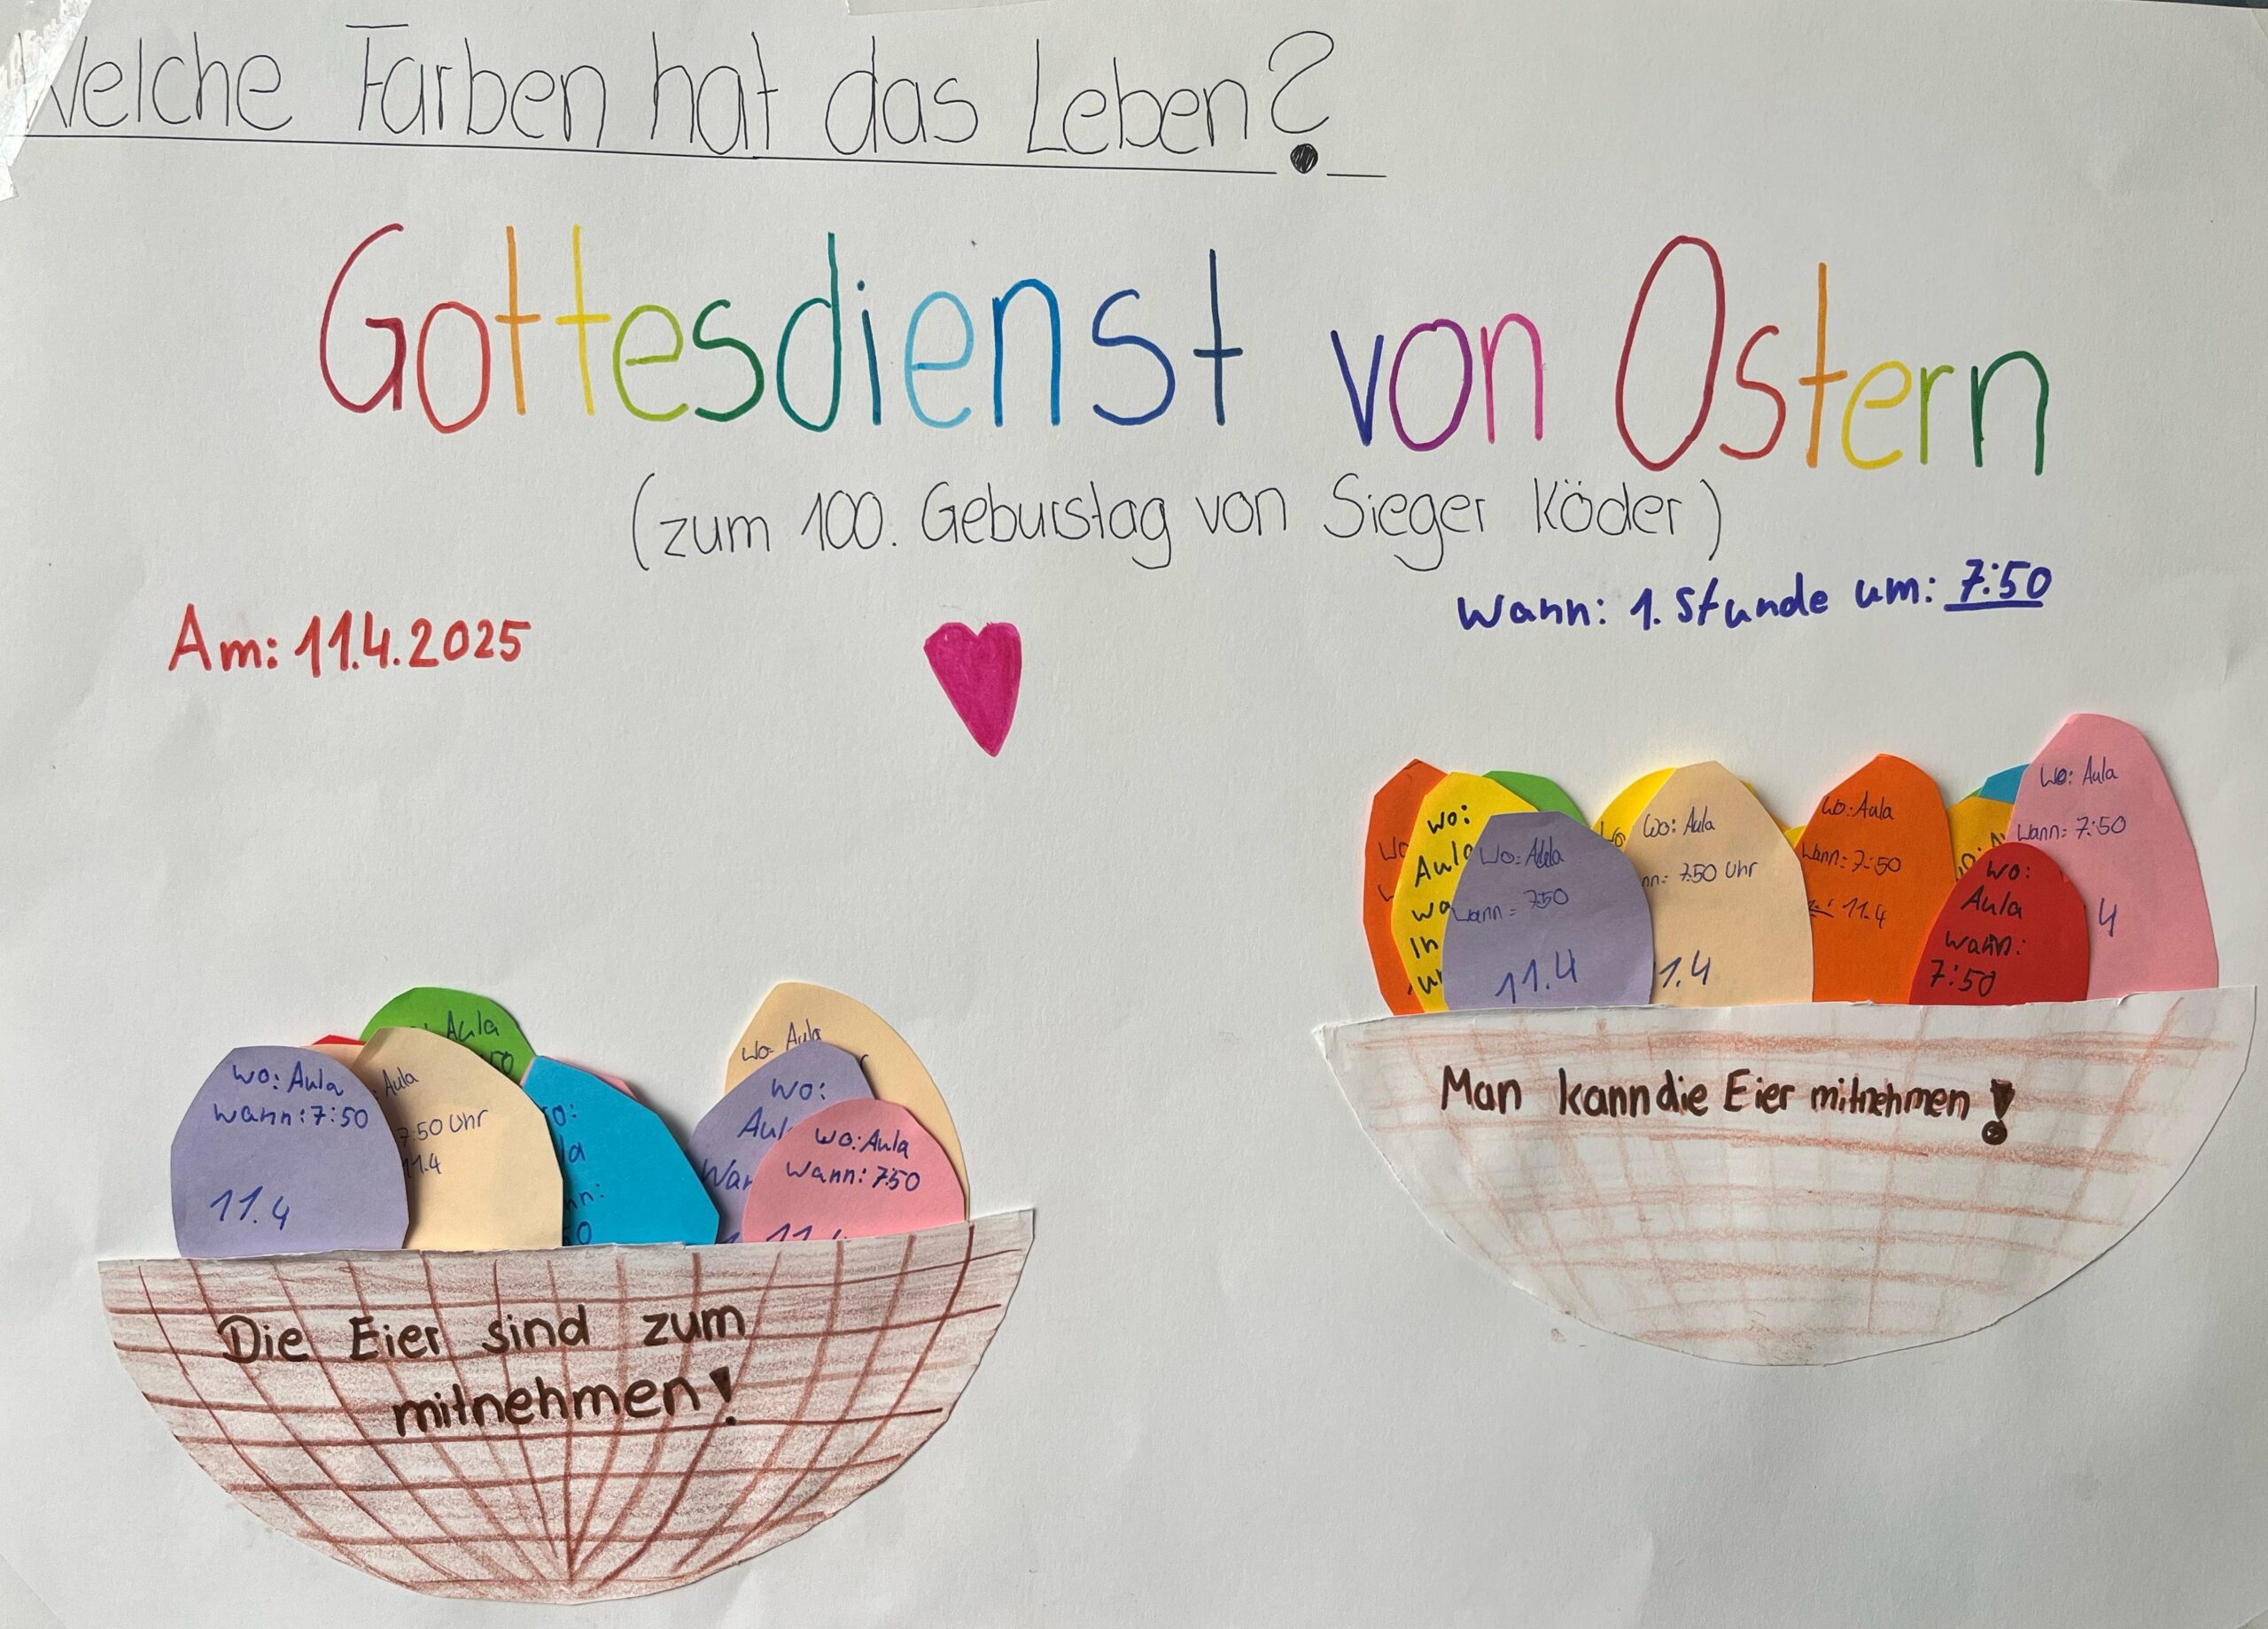 Welche Farben hat das Leben?
Gottesdienst von Ostern
(zum 100. Geburstag von Sieger Köder)
Am: 11.4.2025
Wann: 1. Stunde um: 7:50
wo:
Aula
wa
In
Wo: Aula
Wann = 7:50
11.4
Wo: Aula
nn: 7:50 Uhr
1.4
Wo: Aula
Wann = 7:50
11.4
Wo: Aula
Wann = 7:50
4
Wo:
Aula
wann:
7:50
Man kann die Eier mitnehmen!
Wo: Aula
Wann: 7:50
11.4
Aula
50
Aula
7:50 Uhr
11.4
o:
la
nn:
0
Wo: Aula
Wo:
Aul
Wan
Wo: Aula
Wann: 7:50
11.4
Die Eier sind zum
mitnehmen!